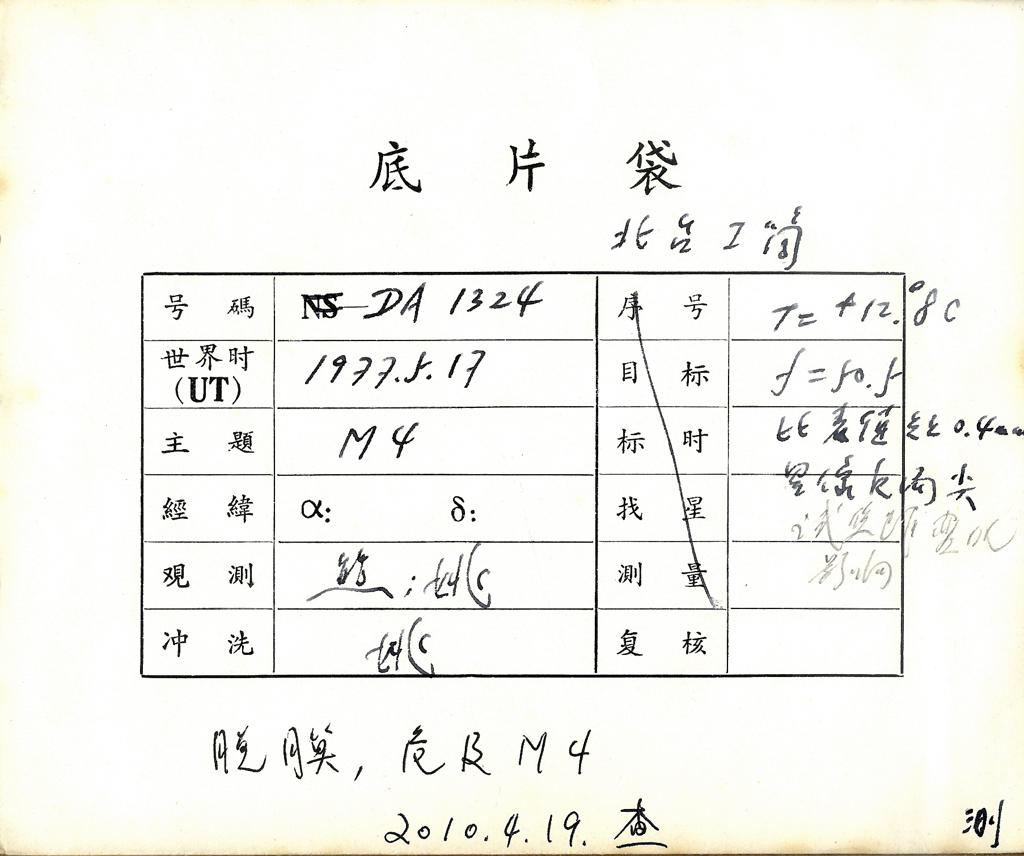 底 片 袋
北台工筒
号 碼 NS DA 1324 序 号 T= +12.°8C
世界时 (UT) 1977.5.17 目 标 f=50.5
主 題 M4 标 时 比表值 0.4mm
經 緯 α: δ: 找 星 星像 尖
观 測 測 量 影响
冲 洗 复 核
脱膜, 危及M4
2010.4.19. 查
测